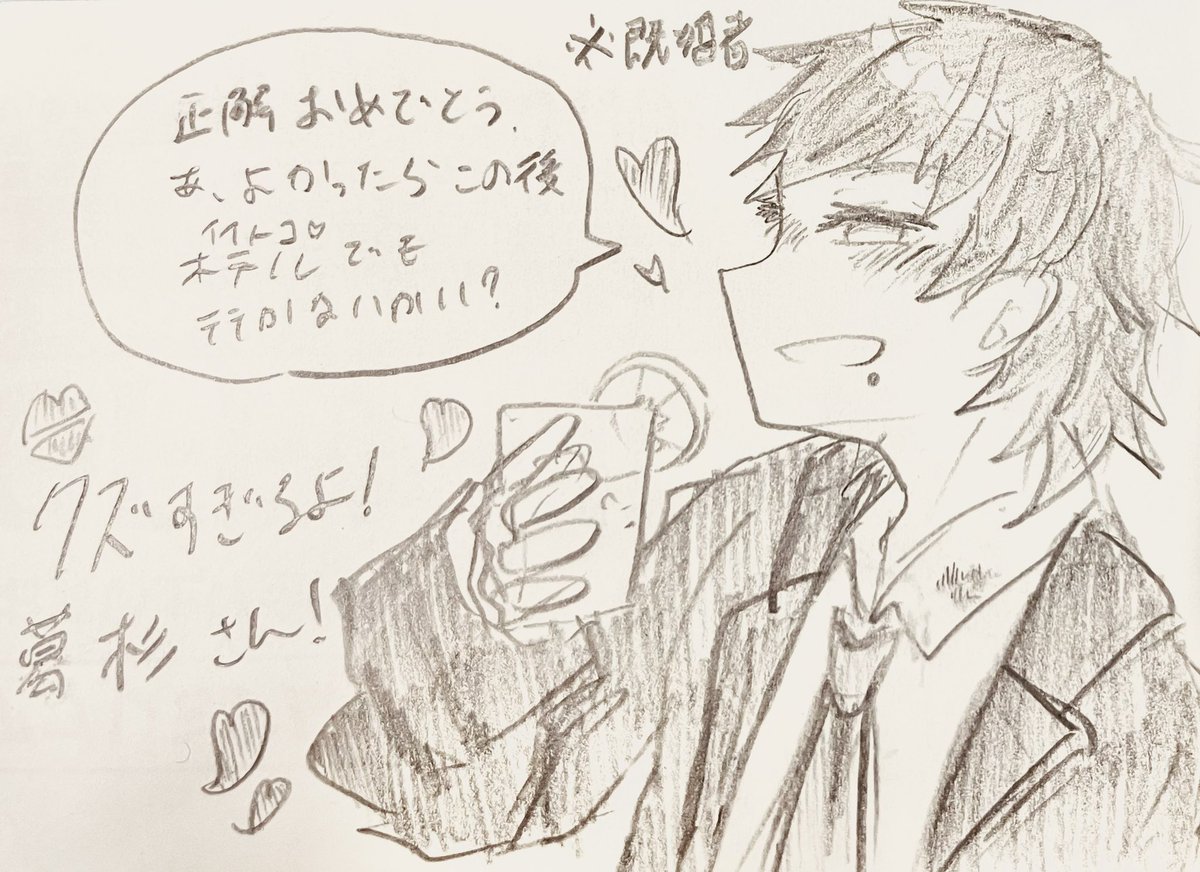 ※既婚者
正解おめでとう.
あ、よかったらこの後
イイトコロ
ホテルでも
行かないかい?
クズすぎるよ!
葛杉さん!